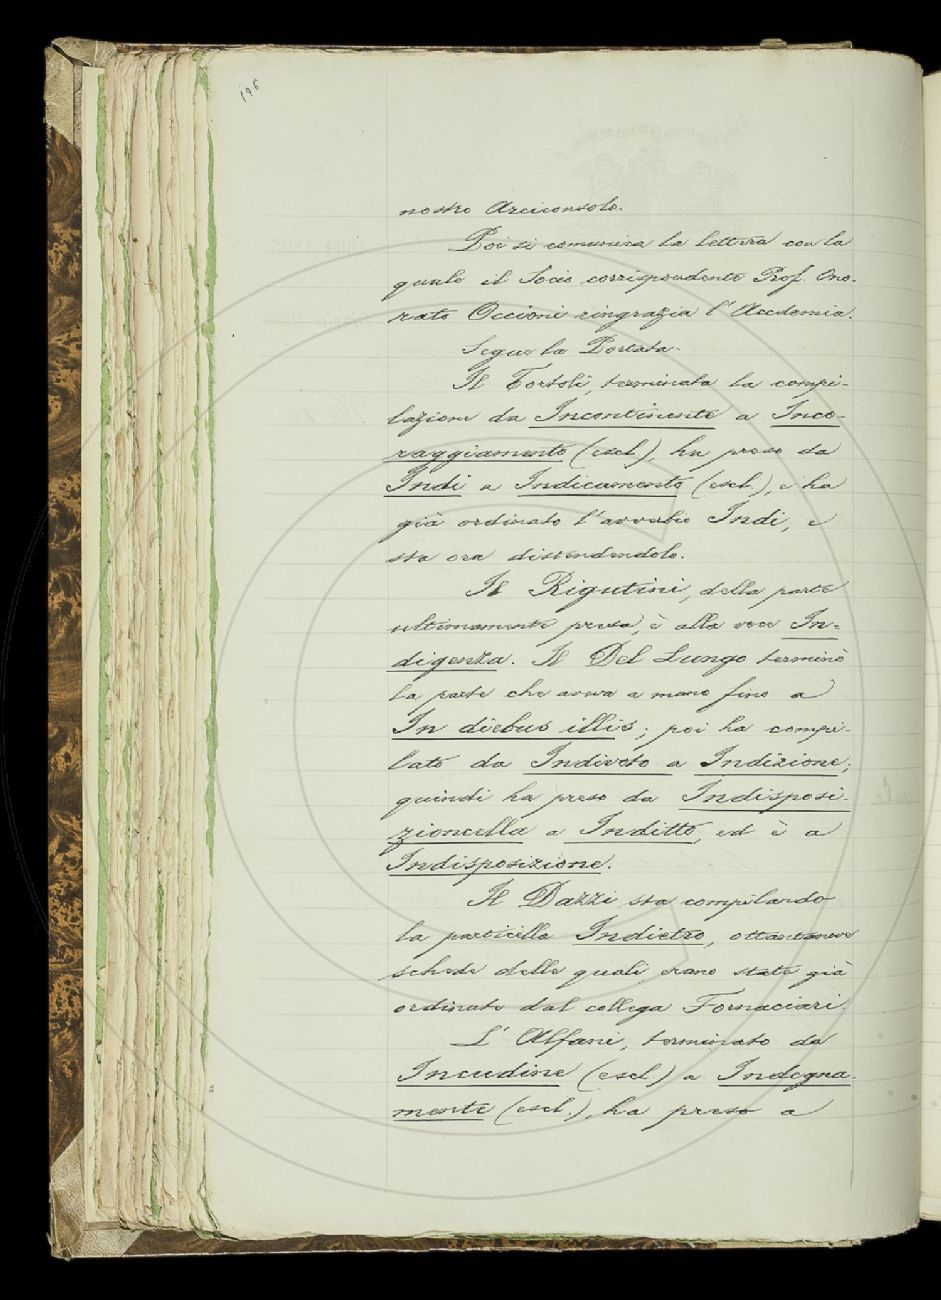 196
nostro Arciconsolo.
Poi si comunica la lettera con la
quale il Socio corrispondente Prof. Ono-
rato Occioni ringrazia l'Accademia.
Segue la Portata.
Il Tortoli, terminata la compi-
lazione da Incontinente a Inco-
raggiamento (escl.), ha preso da
Indi a Indicamento (escl.), e ha
già ordinato l'avverbio Indi, e
sta ora distendendolo.
Il Rigutini, della parte
ultimamente presa, è alla voce In-
digenza. Il Del Lungo terminò
la parte che aveva a mano fino a
In diebus illis; poi ha compi-
lato da Indiveto a Indizione;
quindi ha preso da Indisposi-
zioncella a Inditto, ed è a
Indisposizione.
Il Dazzi sta compilando
la particella Indietro, ottantanove
schede delle quali erano state già
ordinate dal collega Fornaciari.
L'Alfani, terminato da
Incudine (escl.) a Indegna-
mente (escl.), ha preso a